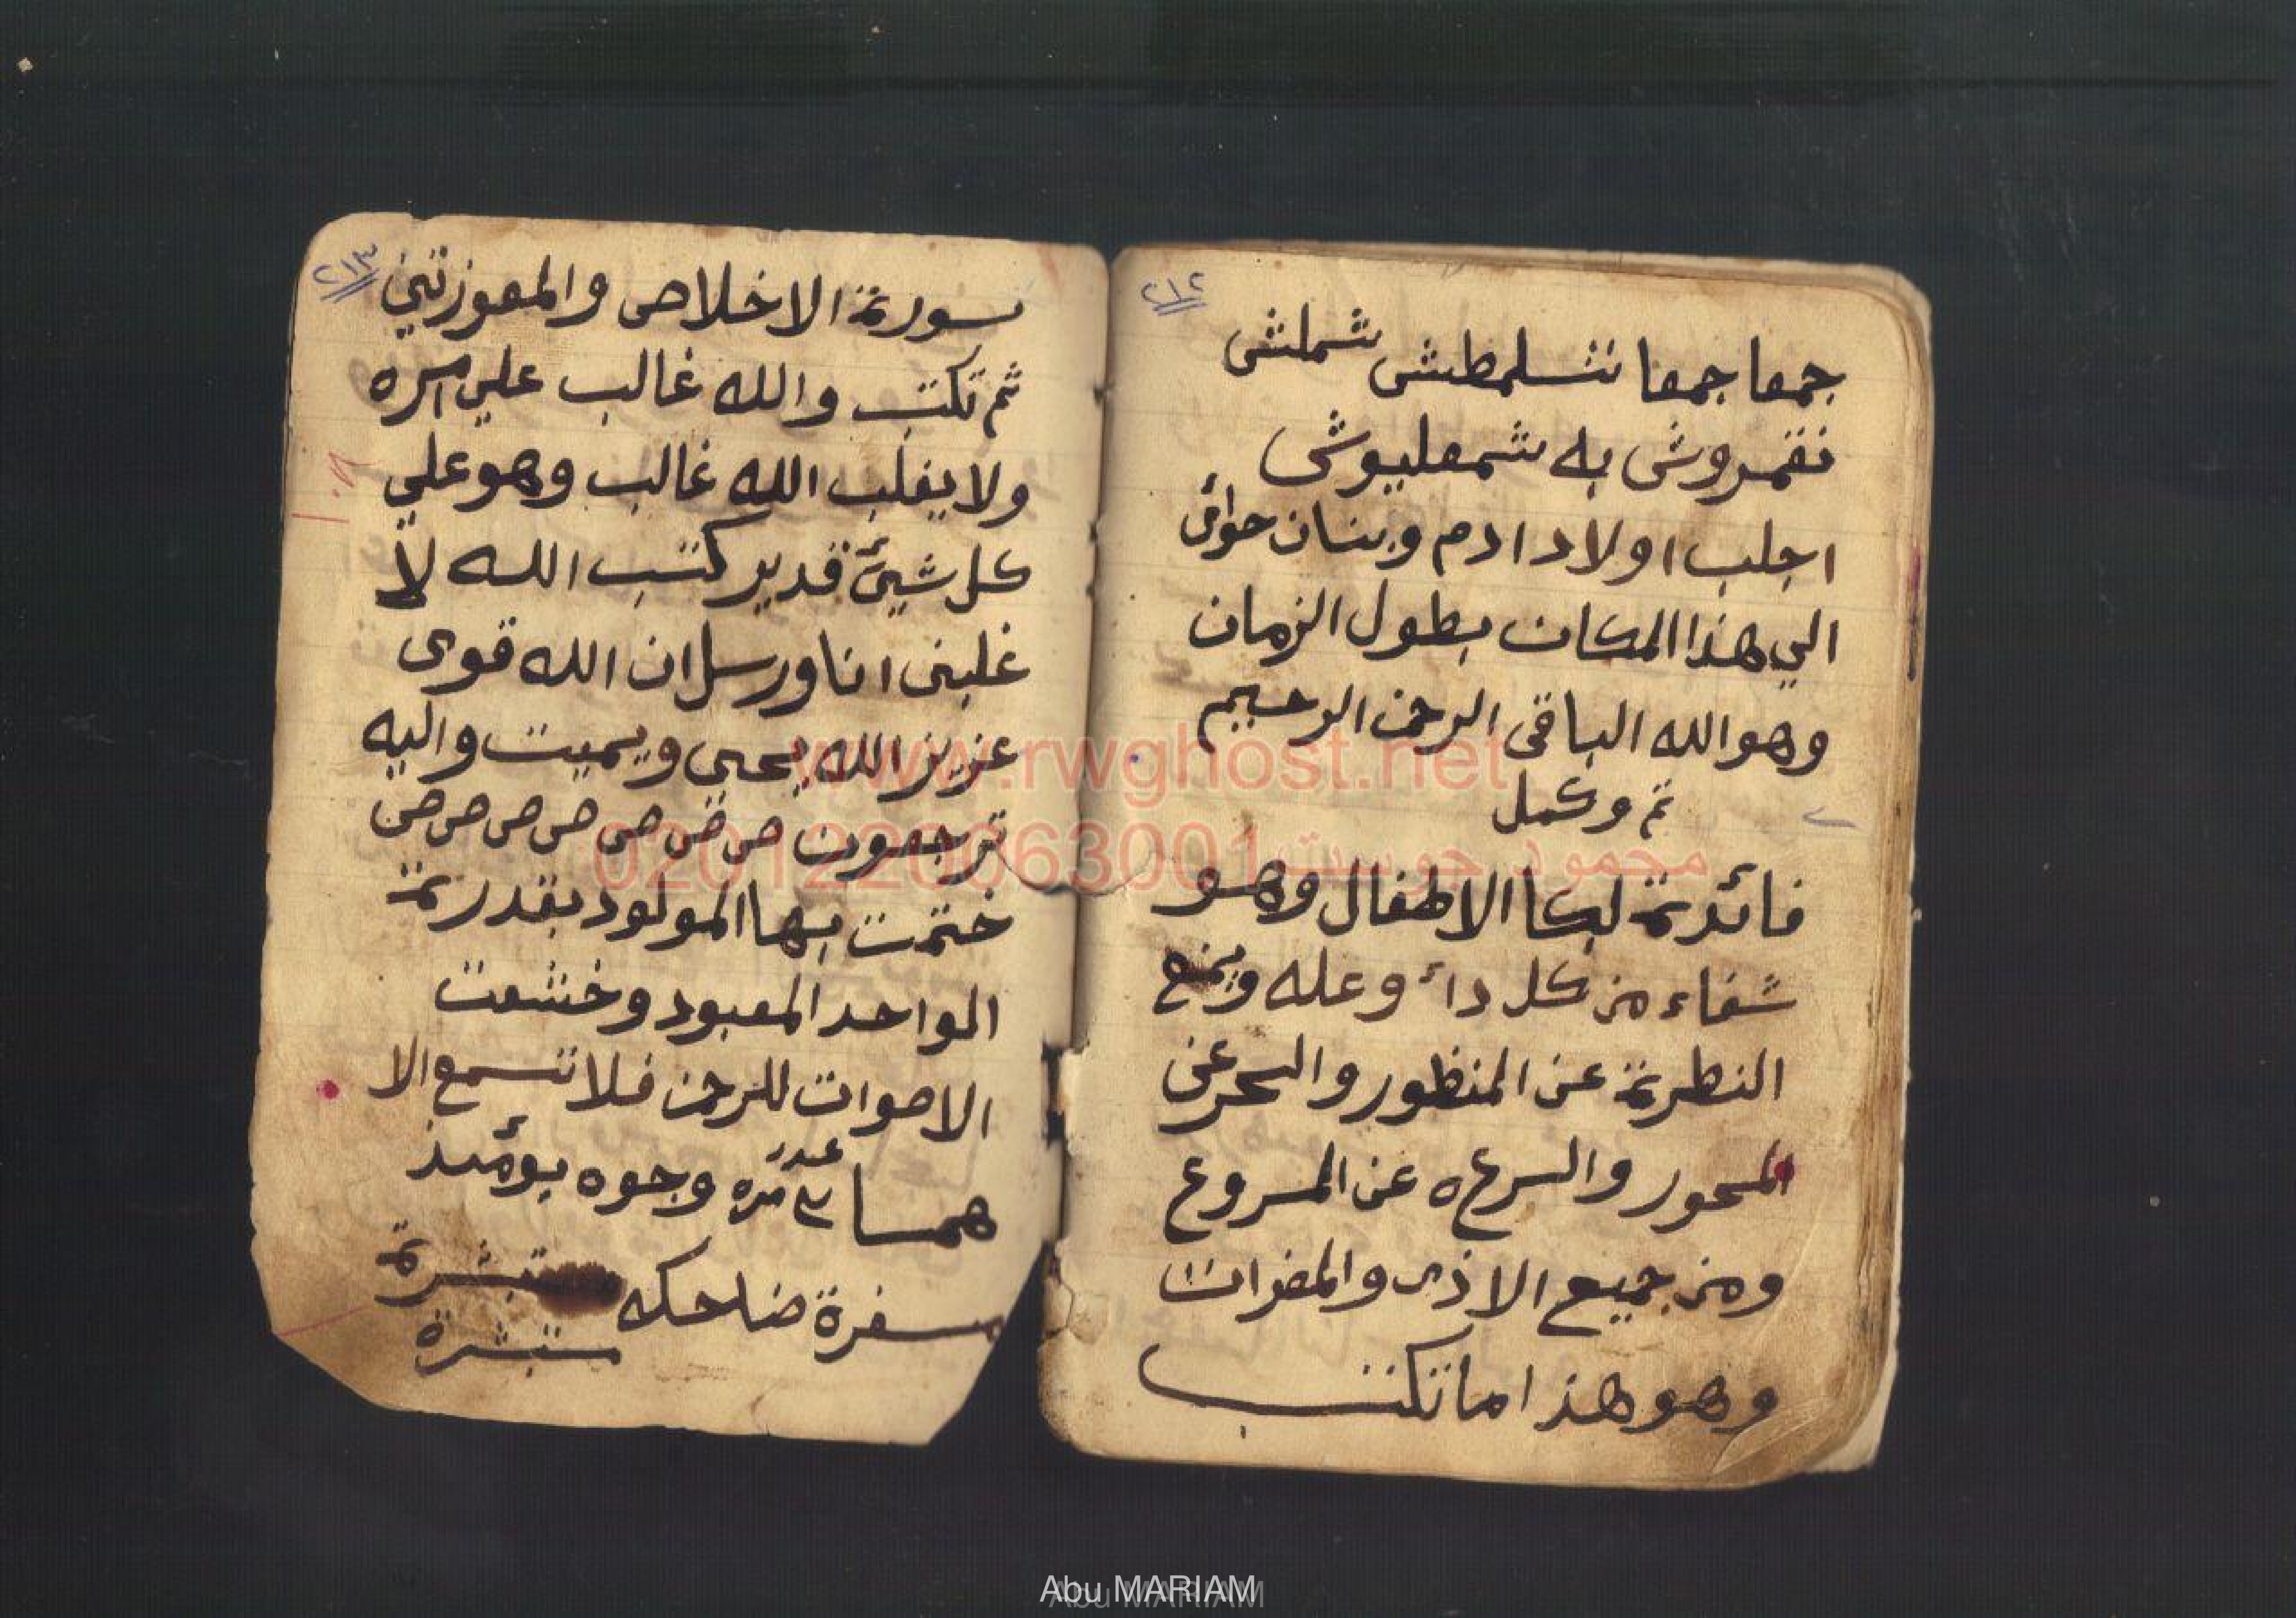 ٢١٢
جمعا جمعا شلمطش شملش
فقمروش به شمعليوش
اجلب اولاد ادم وبنات حوائ
الي هذا المكان بطول الزمان
وهو الله الباقى الرحمن الرحيم
تم وكمل
فائدة لبكا الاطفال وهو
شفاء من كل دائ وعله ويمنع
النطرة عن المنظور والسحر عن
المسحور والسرعه عن المسروع
ومن جميع الاذى والمضرات
وهو هذا ما تكتب
٢١٣
سورة الاخلاص والمعوزتين
ثم تكتب والله غالب علي امره
ولا يغلب الله غالب وهو علي
كل شيئ قدير كتب الله لا
غلبن انا ورسل ان الله قوى
عزيز الله يحيي ويميت واليه
ترجعون ص ص ص ص ص ص ص ص
ختمت بها المولود بقدرة
الواحد المعبود وخشعت
الاصوات للرحمن فلا تسمع الا
همسا عدد ٣ مره وجوه يومئذ
مسفرة ضاحكه مستبشرة
مستبشرة
www.rwghost.net
محمود جوست 0201220063001
Abu MARIAM